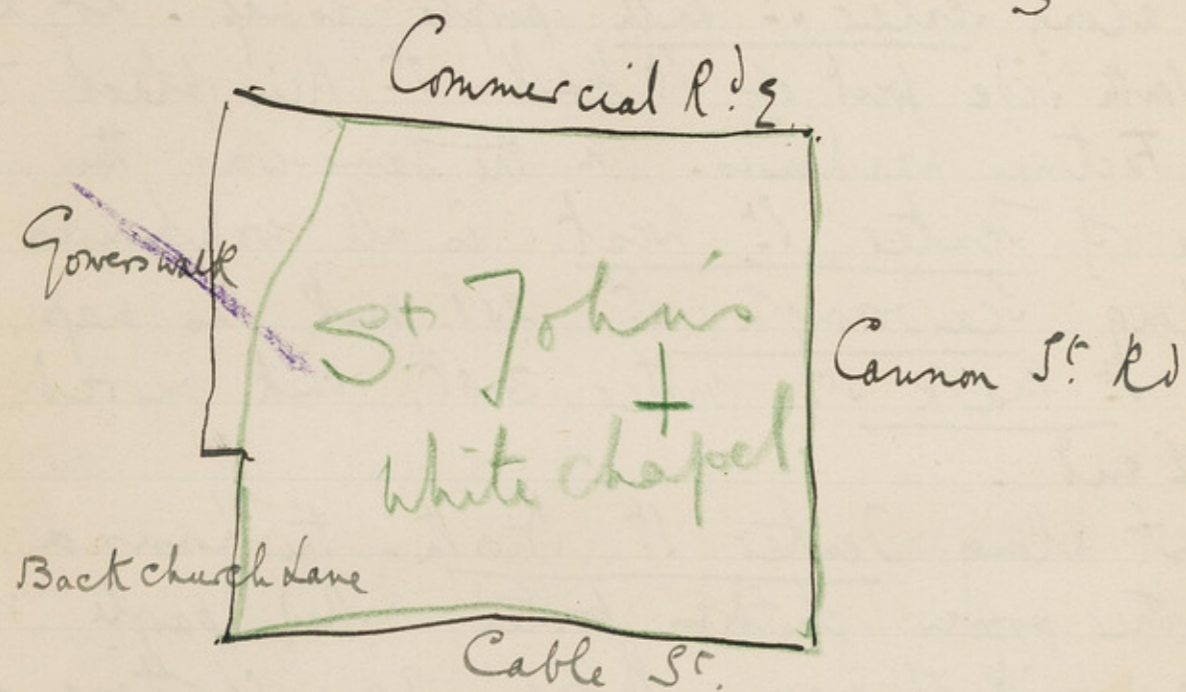 Commercial Rd. E.
Gowerswalk
St John's
+
White chapel
Cannon St. Rd
Back church Lane
Cable St.